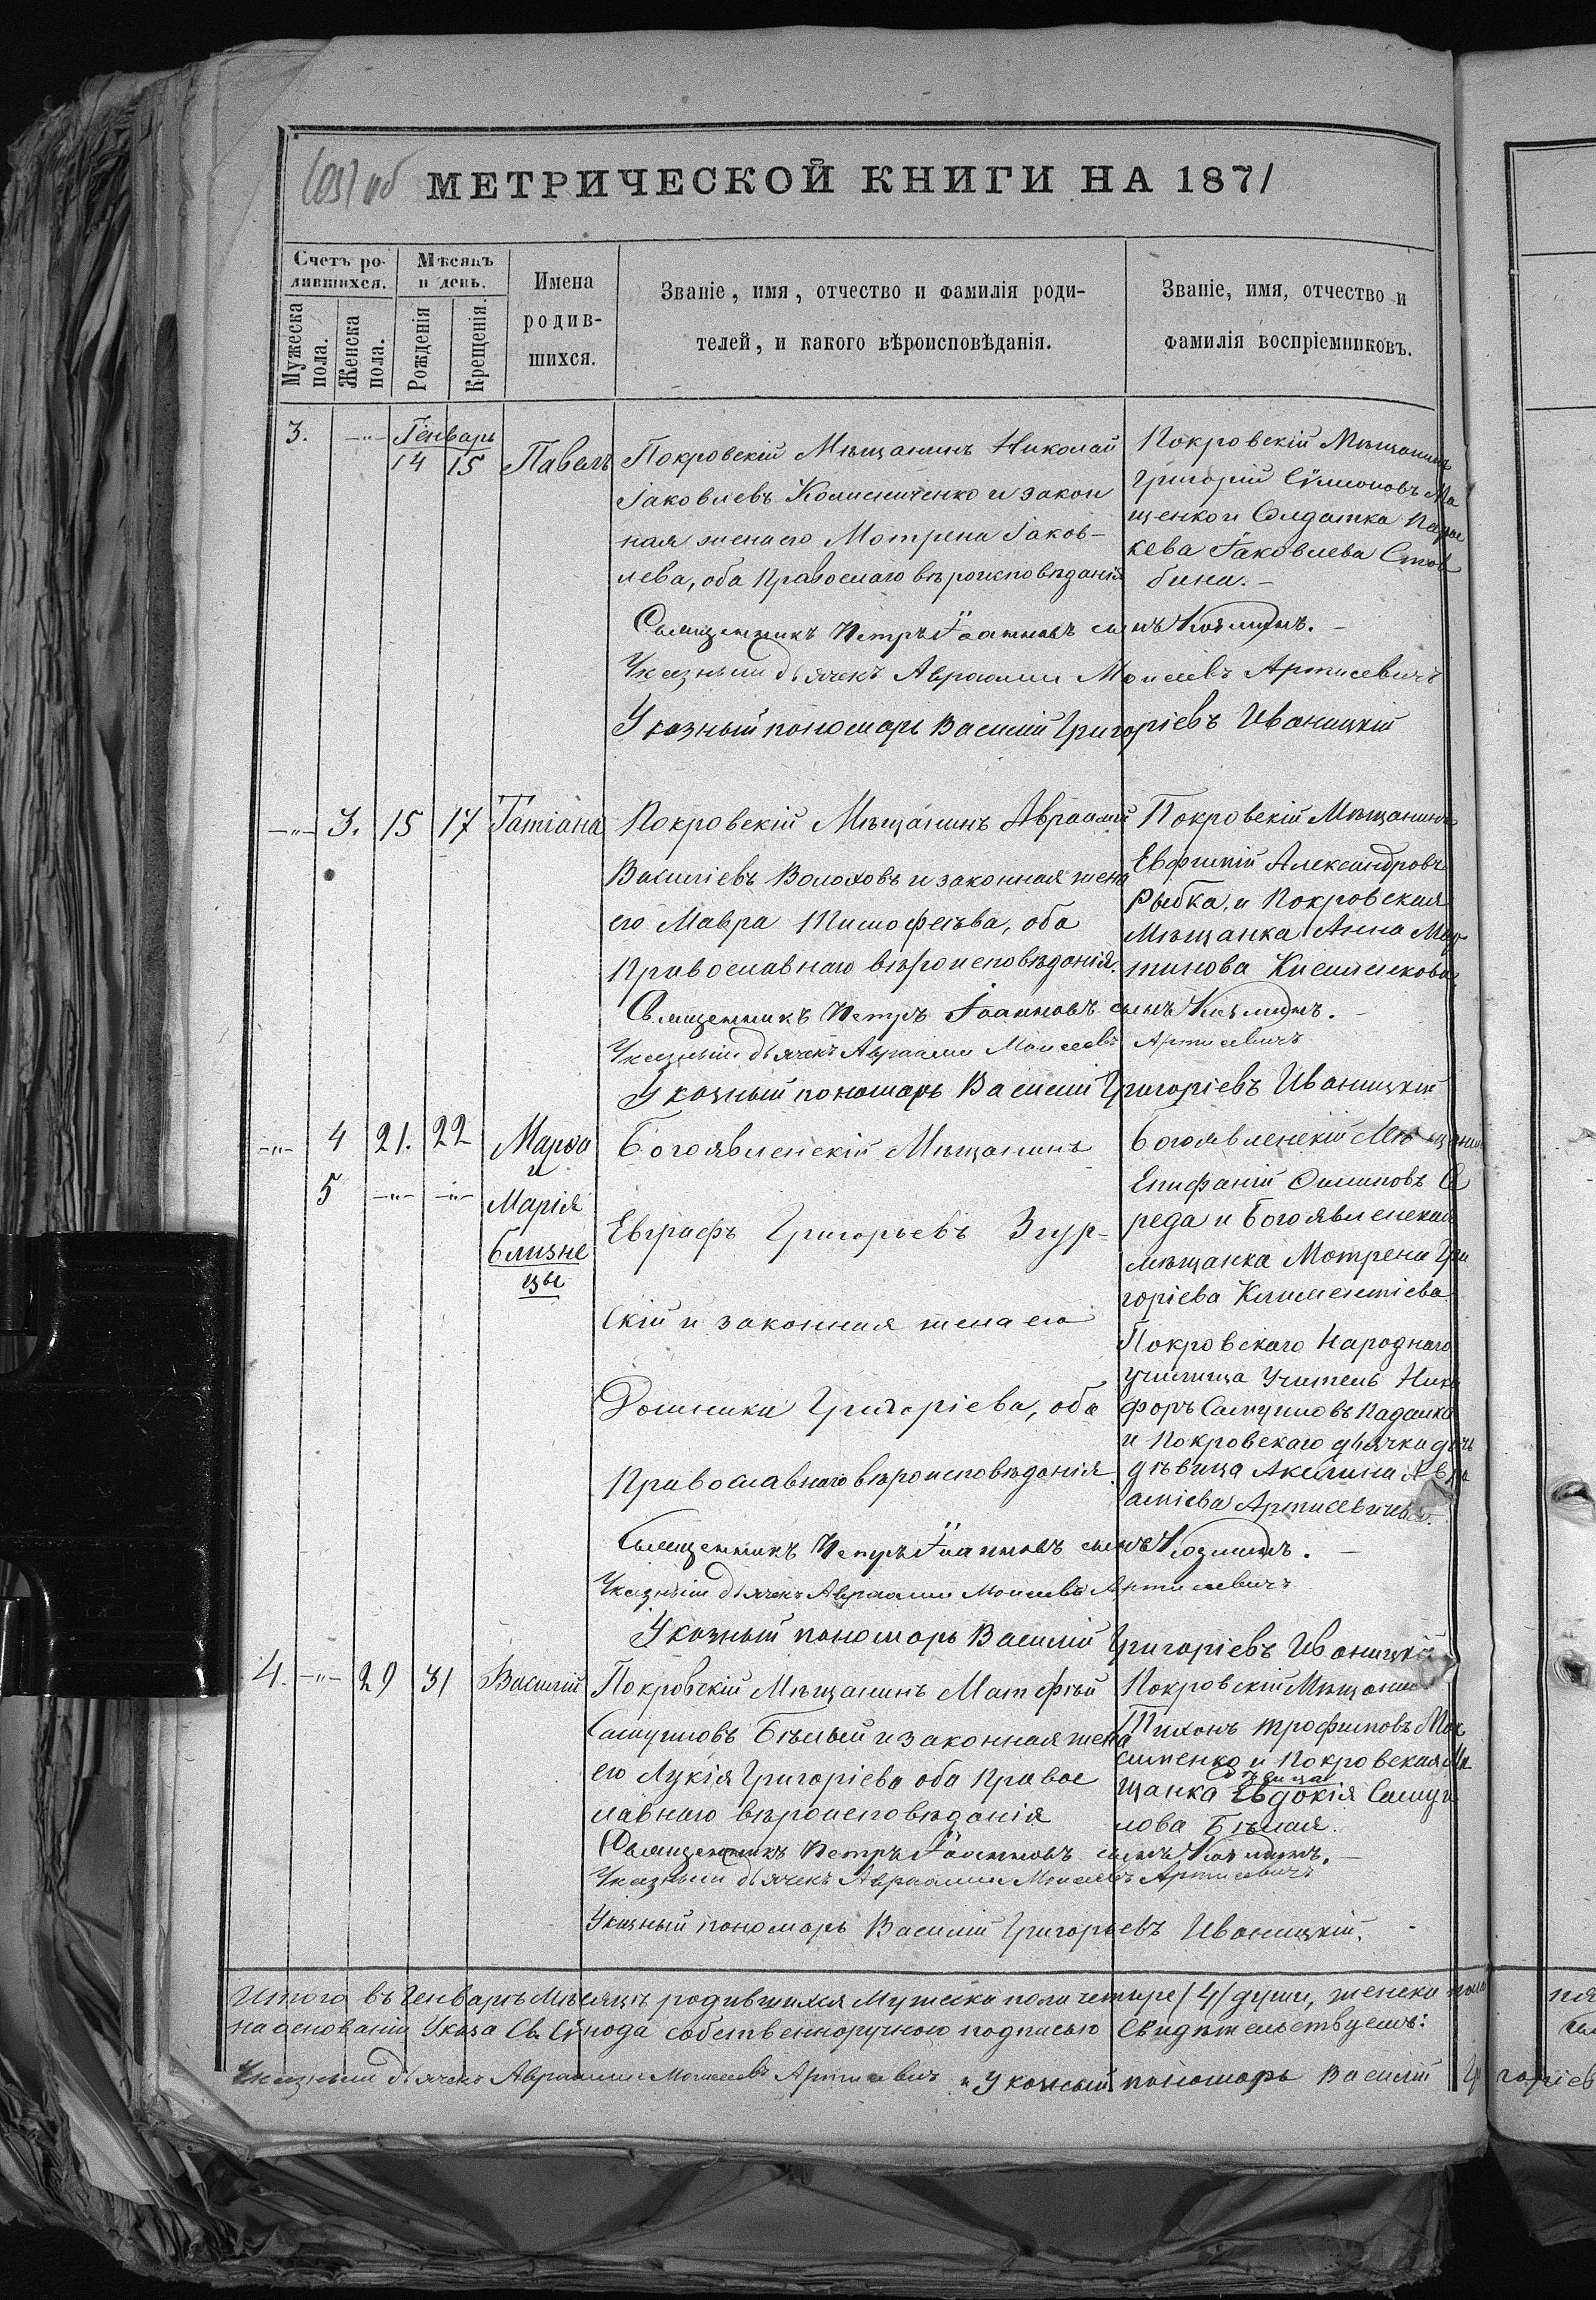 МЕТРИЧЕСКОЙ КНИГИ НА 1871
Счетъ ро-
дившихся.
Мѣсяцъ
и день.
Мужеска
пола.
Женска
пола.
Рожденія
Крещенія.
Имена
родив-
шихся.
Званіе, имя, отчество и фамилія роди-
телей, и какого вѣроисповѣданія.
Званіе, имя, отчество и
фамилія воспріемниковъ.
Генварь
3. —"— 14 15 Павелъ
Покровскій Мѣщанинъ Николай
Іаковлевъ и закон
ная жена его Мотрена Іаков-
лева, оба Правосмаго вѣроисповѣданія
Покровскій Мѣщанинъ
Григорій Сѵмеоновъ Ма
щенко и Солдатка Парас
кева Іаковлева Стов
бина.—
Священникъ Петръ Іоанновъ сынъ Козминъ.—
Указный дьячекъ Авраамій Моисеевъ Артисевичъ
Указный пономарь Василій Григоріевъ Иваницкій
—"— 3. 15 17 Татіана
Покровскій Мѣщанинъ Авраамій
Василіевъ Волоховъ и законная жена
его Мавра Тимофеѣва, оба
Православнаго вѣроисповѣданія.
Покровскій Мѣщанинъ
Евфимій Александровъ
Рыбка, и Покровская
Мѣщанка Анна Мар
тинова
Священникъ Петръ Іоанновъ сынъ Козминъ.—
Указный дьячекъ Авраамій Моисеевъ Артисевичъ
Указный пономарь Василій Григоріевъ Иваницкій
—"— 4 21. 22 Марѳа
и
5 —"— —"— Марія
близне
цы
Богоявленскій Мѣщанинъ
Евграфъ Григорьевъ Згур-
скій и законная жена его
Домника Григоріева, оба
Православнаго вѣроисповѣданія.
Богоявленскій Мѣщанинъ
Епифаній Филиповъ Се
реда и Богоявленская
мѣщанка Мотрена Гри
горіева Климентіева.
Покровскаго Народнаго
училища Учитель Ники
форъ Самуиловъ Падалка
и Покровскаго дьячка дочь
дѣвица Акилина Авра
аміева Артисевичева.
Священникъ Петръ Іоанновъ сынъ Козминъ.—
Указный дьячекъ Авраамій Моисеевъ Артисевичъ
Указный пономарь Василій Григоріевъ Иваницкій
4. —"— 29 31 Василій
Покровскій Мѣщанинъ Матфѣй
Самуиловъ Бѣлый и законная жена
его Лукія Григоріева оба Правос
лавнаго вѣроисповѣданія
Покровскій Мѣщанинъ
Тихонъ Трофимовъ Мак
сименко и Покровская Мѣ
дѣвица
щанка Евдокія Самуи
лова Бѣлая.
Священникъ Петръ Іоанновъ сынъ Козминъ.—
Указный дьячекъ Авраамій Моисеевъ Артисевичъ
Указный пономарь Василій Григорьевъ Иваницкій.
Итого въ Генварѣ Мѣсяцѣ родившихся Мужеска пола четыре /4/ души, женска пола
на основаніи Указа Св. Сѵнода собственноручною подписью свидѣтельствуемъ:
Указный дьячекъ Авраамій Моисеевъ Артисевичъ и Указный пономарь Василій Григоріев